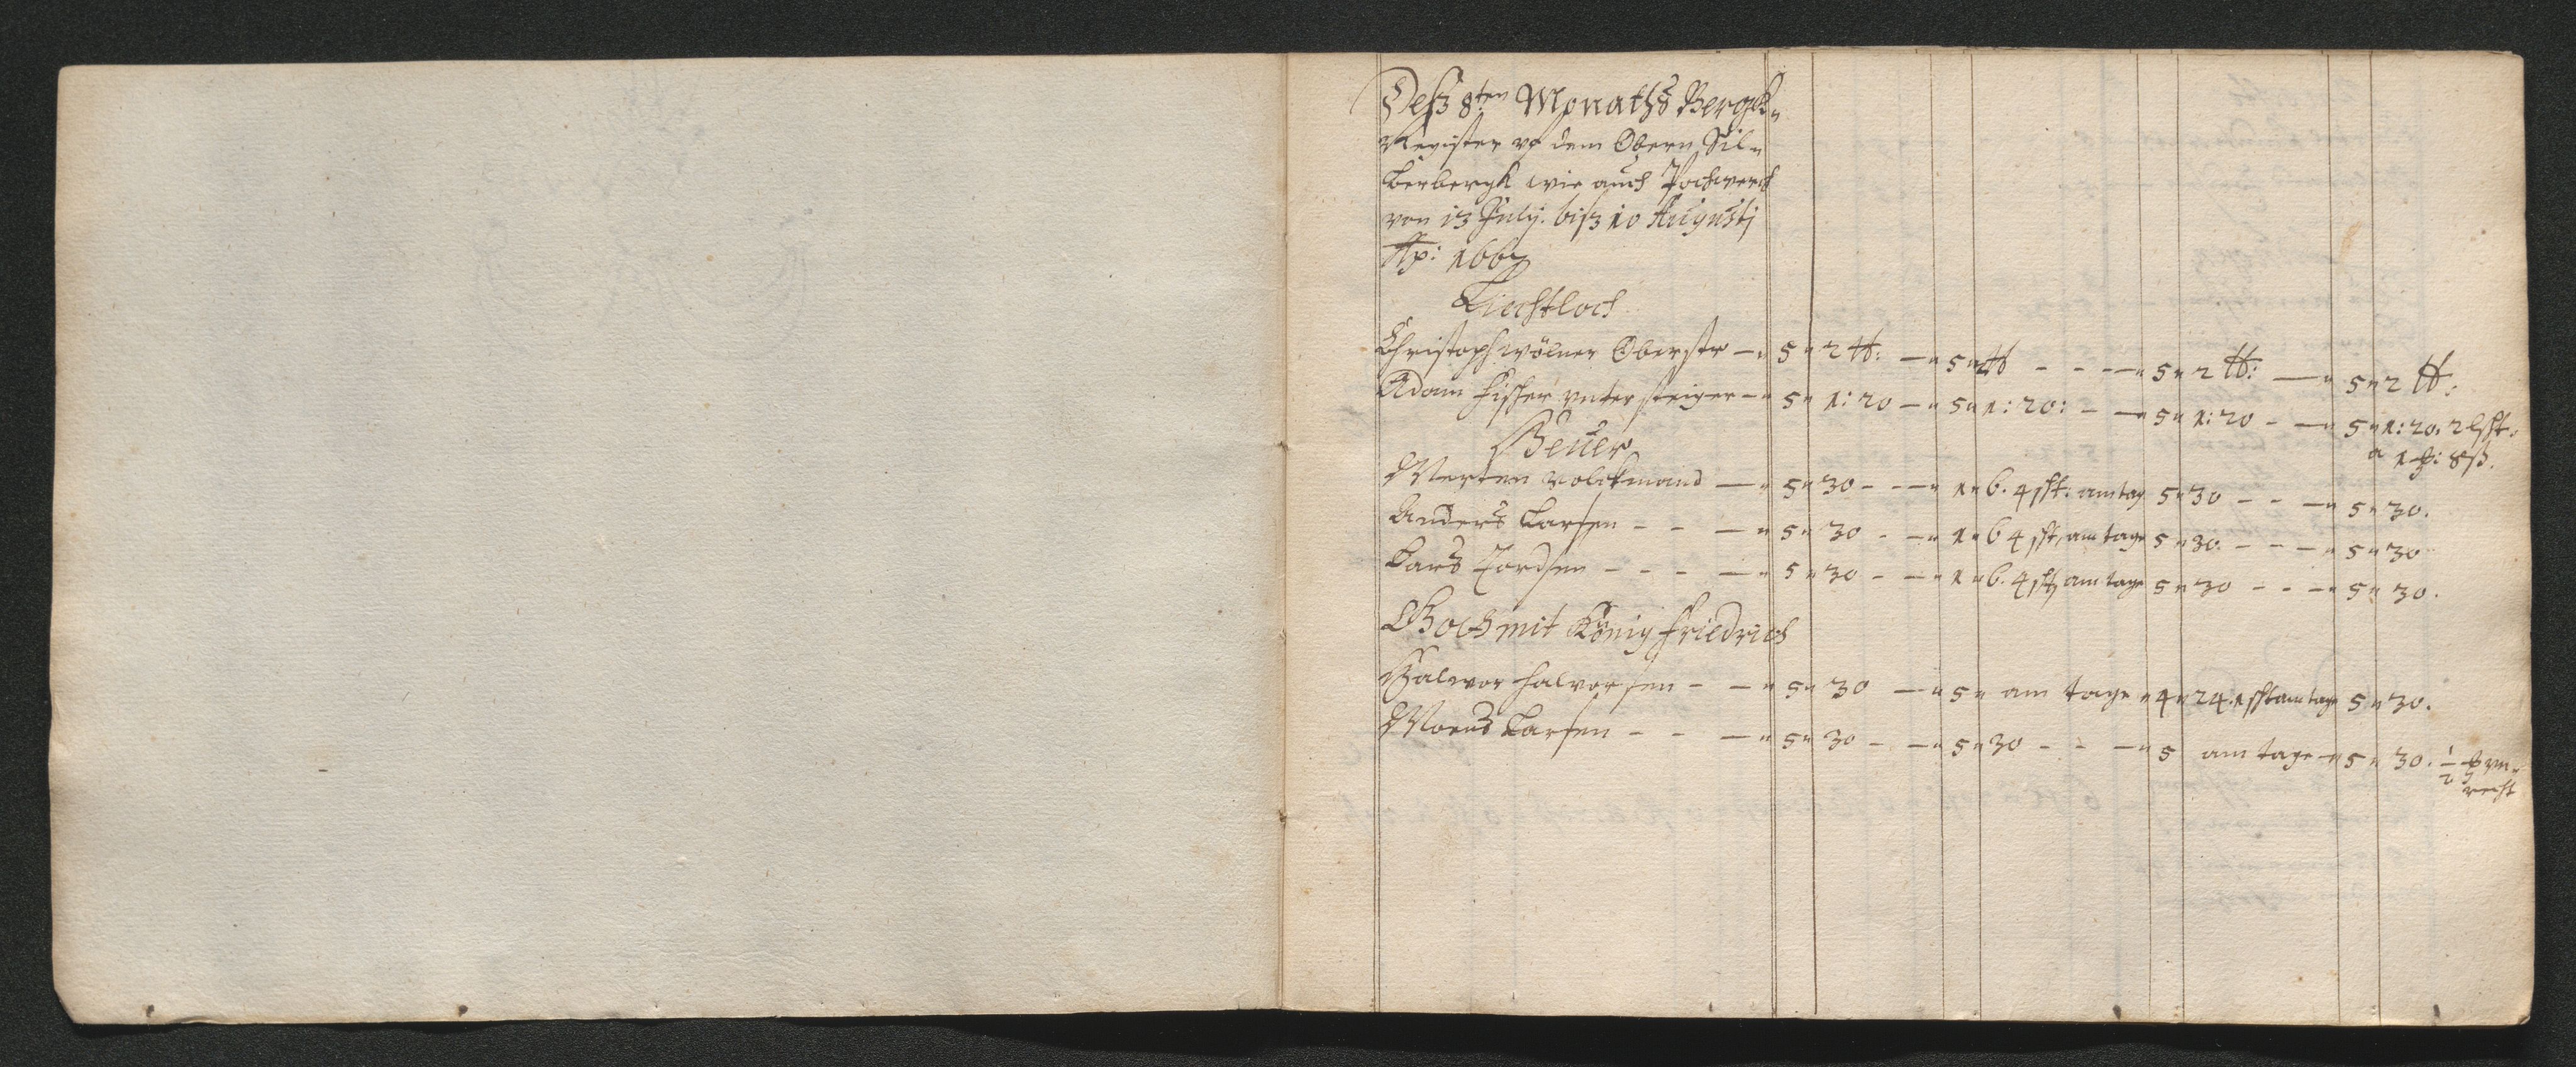 Deß 8ten Monaths Bergk-
Register vf dem Obern Sil-
berbergk wie auch Pochwerck
von 13 July. biß 10 Augustj
Ao: 1667
Liechtloch
Christoph wölner Oberstr — 5 " 2 — 5 " 2 - - — 5 " 2 — 5 " 2
Adam Fischer vntersteiger — 5 " 1: 20 — 5 " 1: 20: - — 5 " 1: 20 - — 5 " 1: 20.
a 1 8 ß.
Heuer
Merten volckmand — 5 " 30 - - — 1 " 6. 4 sch: am tag 5 " 30 - - — 5 " 30.
Anders Larsen - - — 5 " 30 - — 1 " 6 4 sch, am tage 5 " 30. - - — 5 " 30
Lars Tordsen - - - — 5 " 30 - — 1 " 6. 4 sch am tage 5 " 30 - - — 5 " 30.
mit König Friedrich
Halvor halvorsen - — 5 " 30 — 5 " am tage " 4 " 24. 1 sch am tage 5 " 30.
Moens Larsen - - — 5 " 30 - — 5 " 30 - - — 5 am tage — 5 " 30. 1/2 vn-
recht